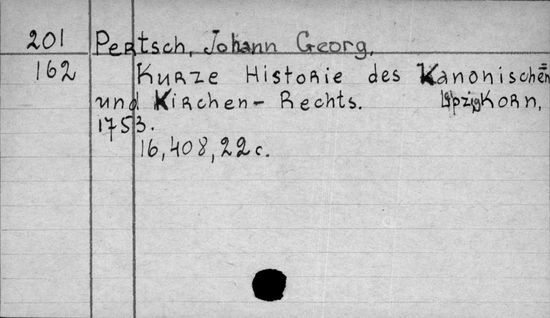 201 Pertsch, Johann Georg.
162 Kurze Historie des Kanonischen=
und Kirchen- Rechts. Lpzig Korn,
1753.
16, 408, 22 c.